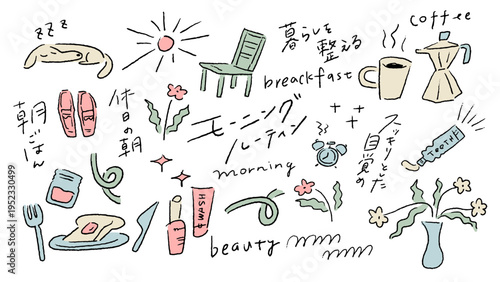 zzz
coffee
暮らしを
整える
breackfast
朝ごはん
休日の朝
モーニング
ルーティン
morning
スッキリとした
目覚め
TOOTH P
WASH
beauty
Adobe Stock | #1952330499